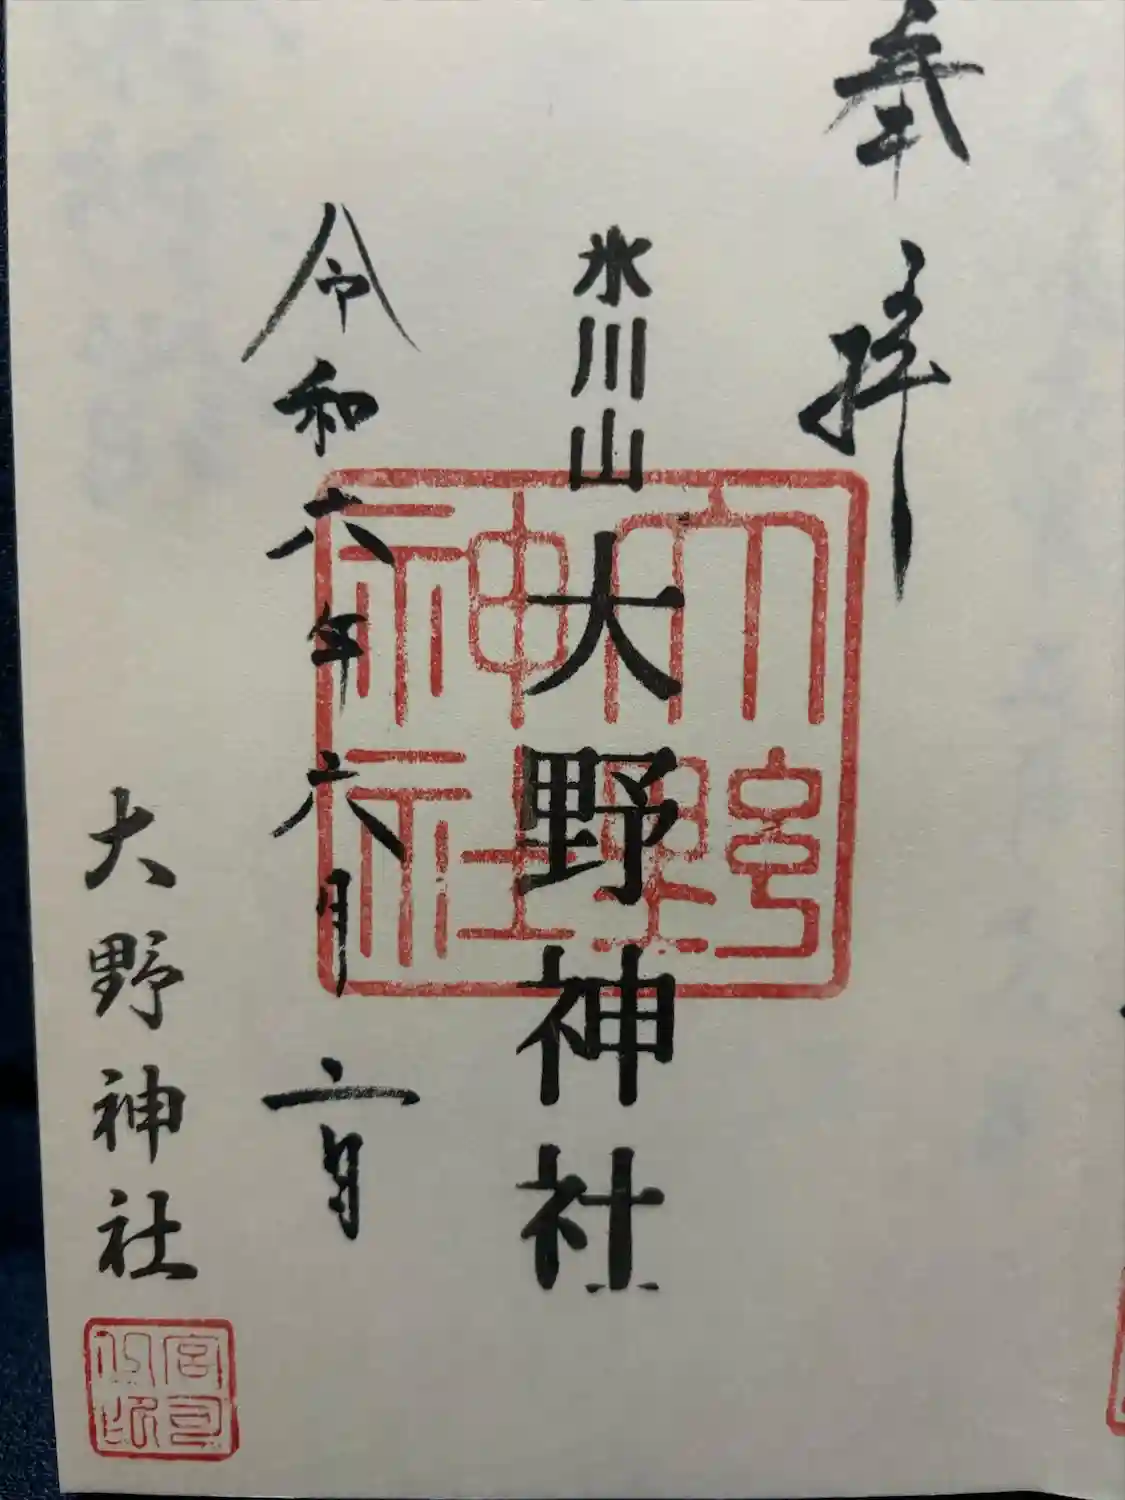 奉拝
氷川山大野神社
大野神社
令和六年六月二日
大野神社
宮司之印